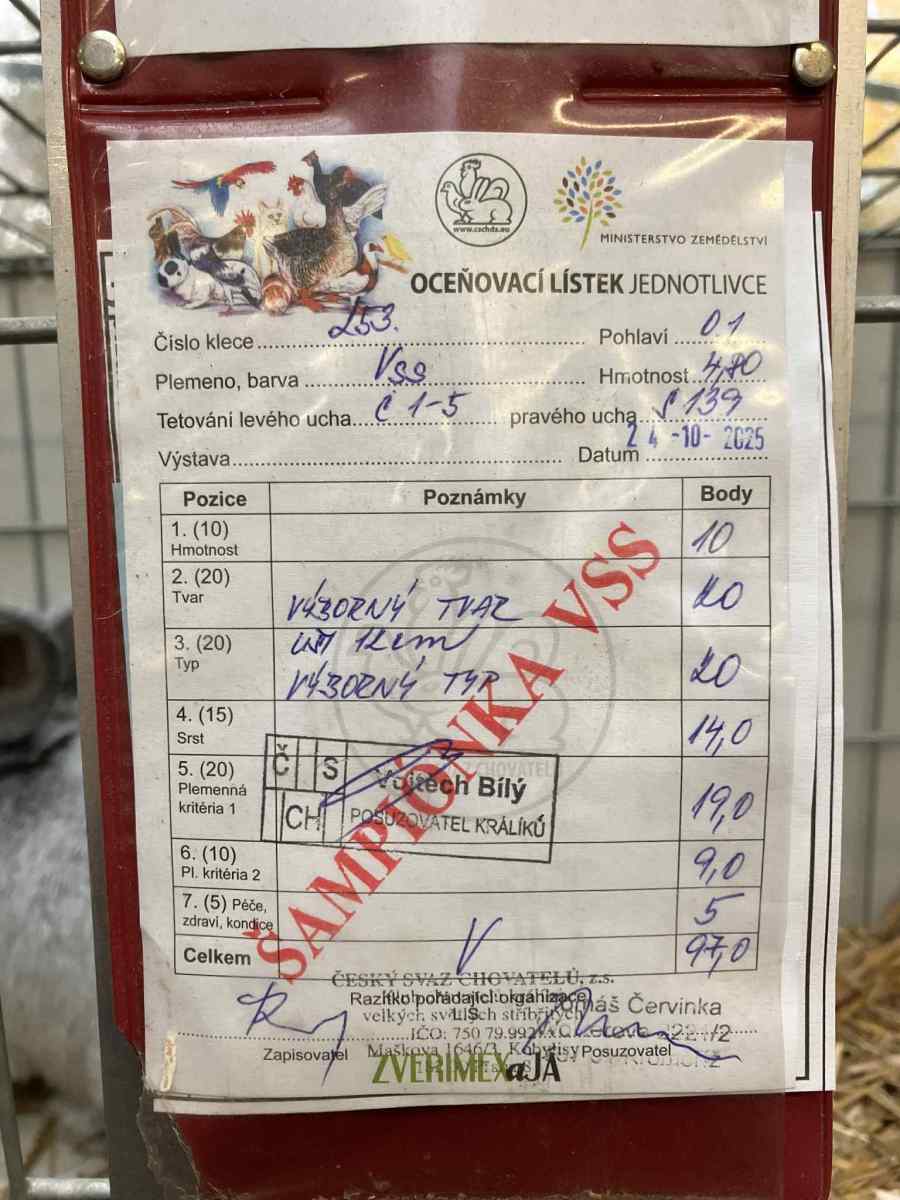 www.cschdz.eu
MINISTERSTVO ZEMĚDĚLSTVÍ
OCEŇOVACÍ LÍSTEK JEDNOTLIVCE
Číslo klece 253. Pohlaví 0 1
Plemeno, barva VSS Hmotnost 4,80
Tetování levého ucha Č 1-5 pravého ucha S 139
Výstava Datum 24 -10- 2025
Pozice Poznámky Body
1. (10) 10
Hmotnost
2. (20) VÝBORNÝ TVAR 20
Tvar
3. (20) 12cm 20
Typ VÝBORNÝ TYP
4. (15) 14,0
Srst
5. (20) 19,0
Plemenná
kritéria 1
6. (10) 9,0
Pl. kritéria 2
7. (5) Péče, 5
zdraví, kondice
Celkem V 97,0
ŠAMPIÓNKA VSS
Č S
CH
Vojtěch Bílý
POSUZOVATEL KRÁLÍKŮ
ČESKÝ SVAZ CHOVATELŮ, z.s.
Razítko pořádající organizace
velkých světlých stříbřitých
IČO: 750 79.992
Maškova 1646/3, Kobylisy
Tomáš Červinka
Zapisovatel Posuzovatel
ZVERIMEXaJÁ